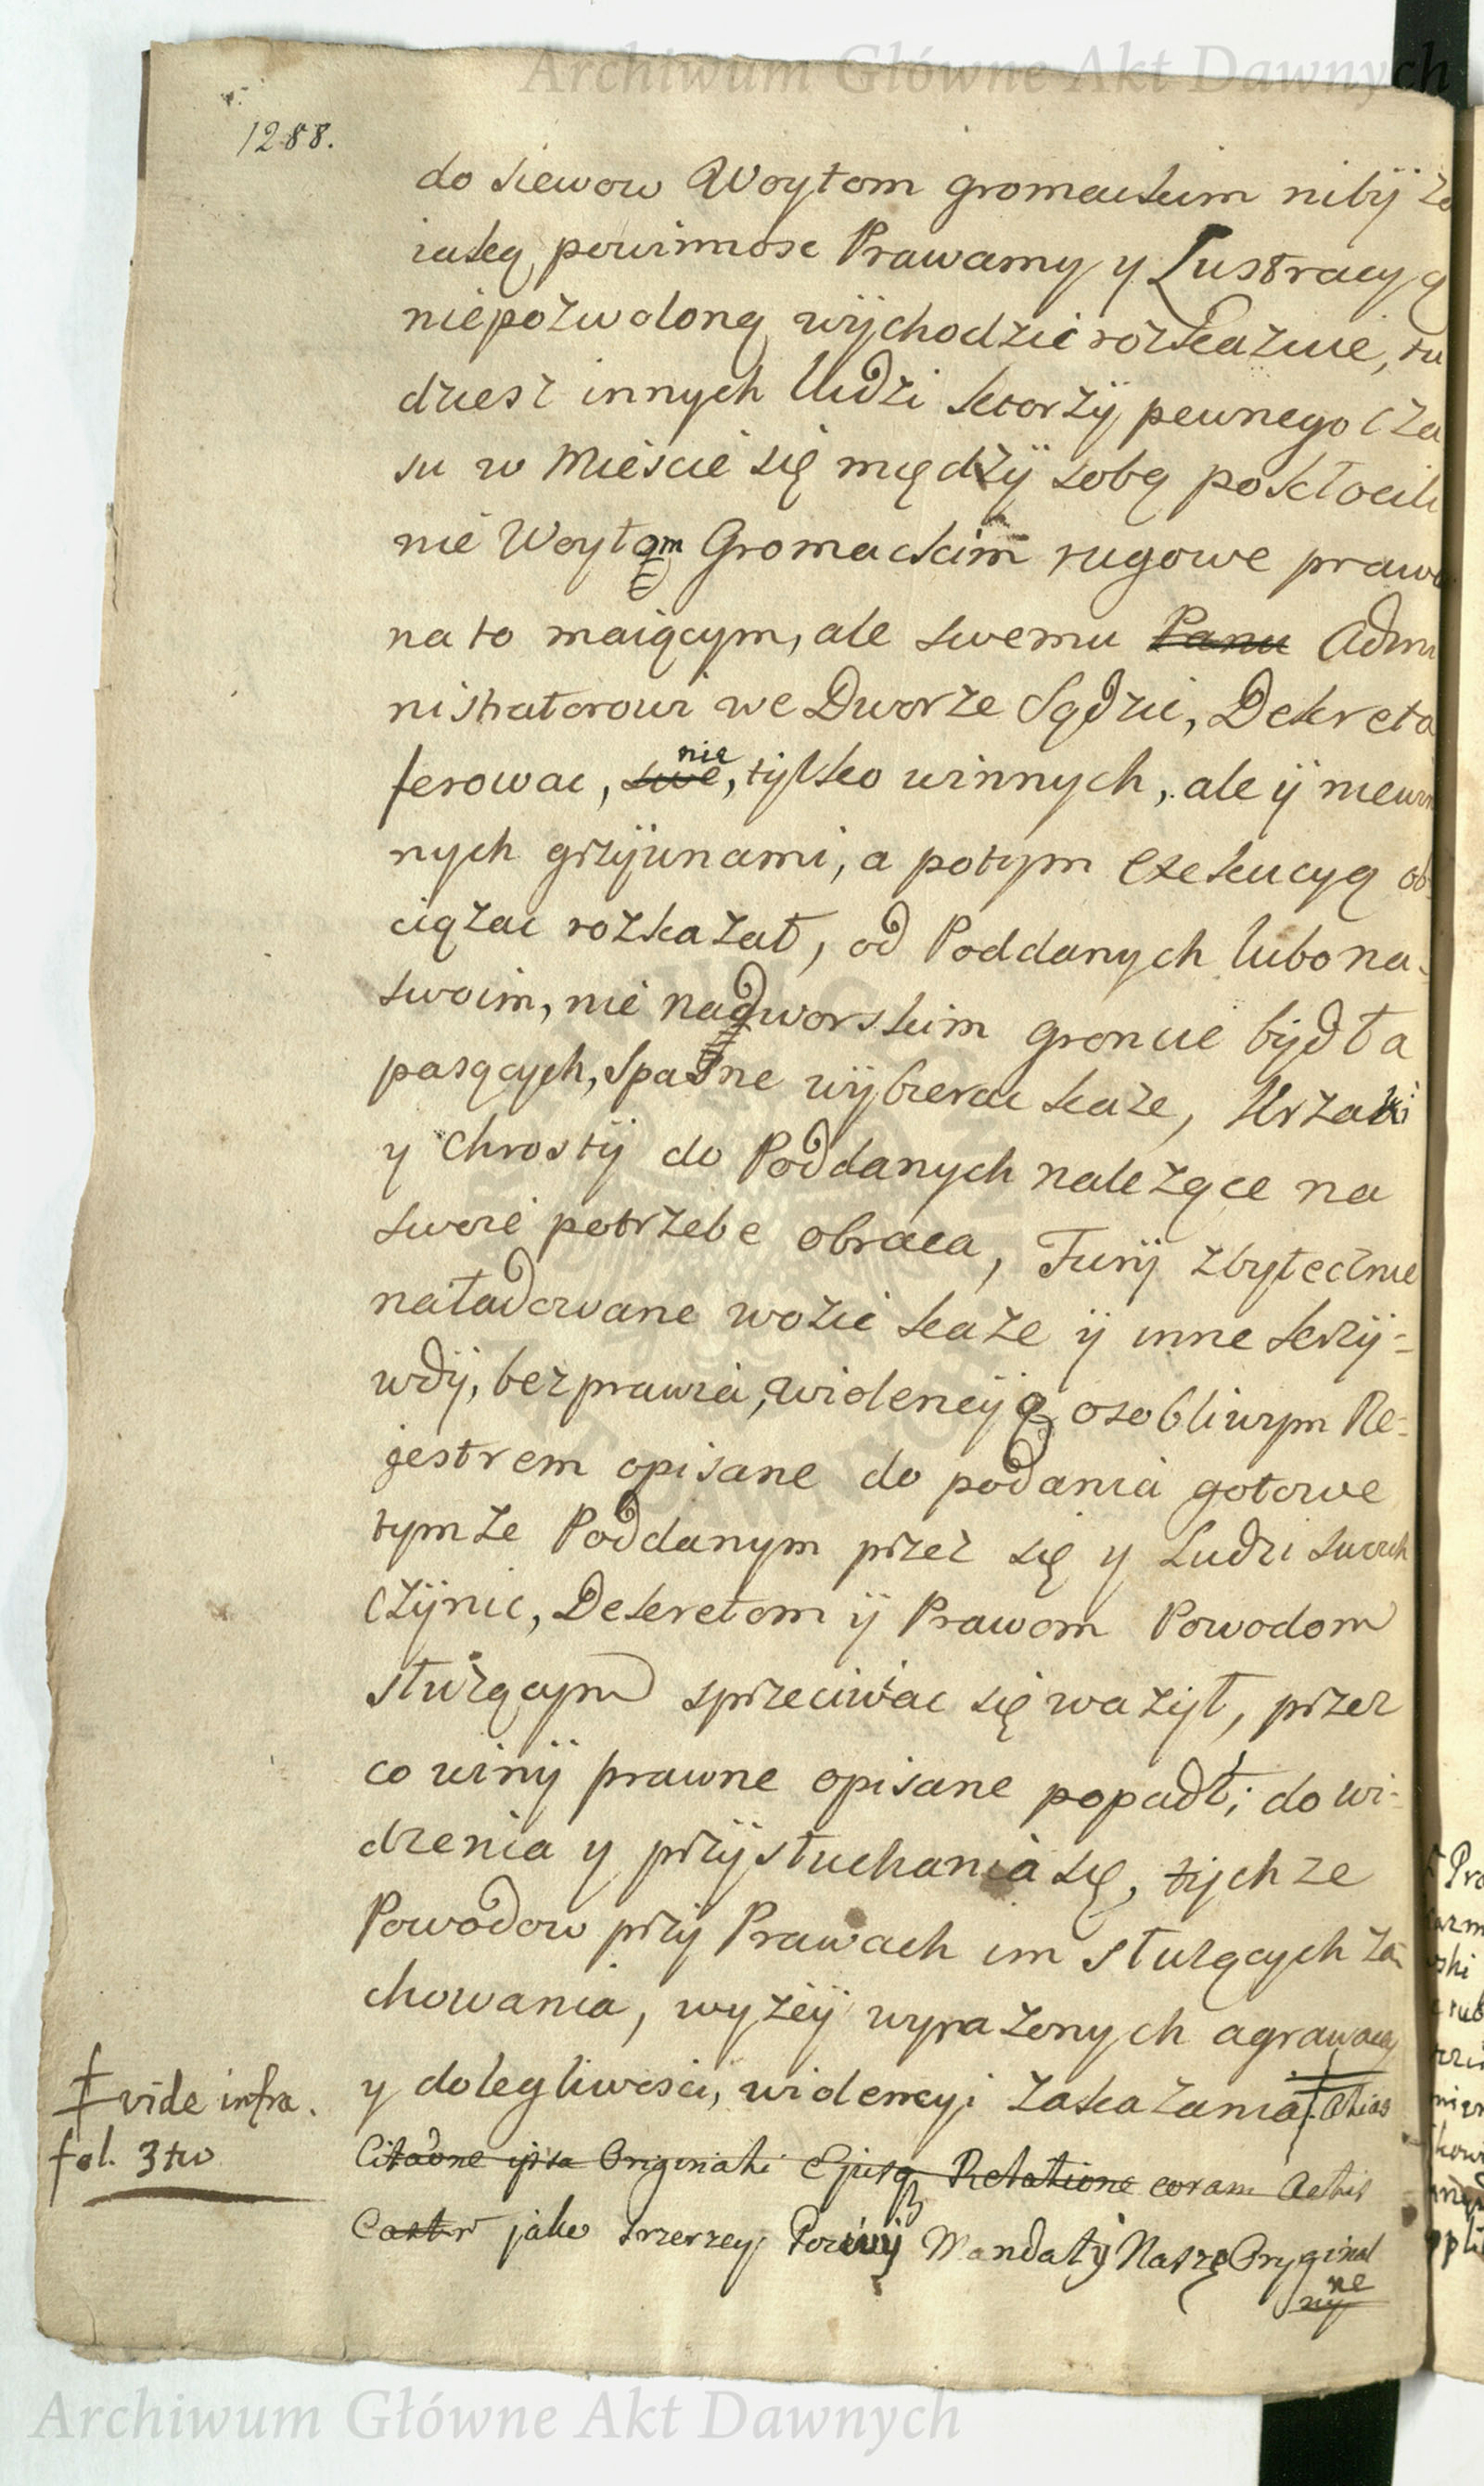 Archiwum Główne Akt Dawnych
1288.
do siewow Woytom gromackim nibÿ za
iakeą powinnosc Prawamy y Lustracyą
niepozwoloną wÿchodzic rozkazuie, tu
dziesz innych ludzi ktorzÿ pewnego Cza
su w Miescie się międzÿ sobą poskłocili
nie Woytom Gromackim rugowe prawo
na to maiącym, ale swemu Panu Admi
nistratorowi we Dworze Sądzic, Dekreta
ferowac, swe, nie tÿlko winnych, ale ÿ niewin
nych grzÿwnami, a potym Exekucyą ob
ciązac rozkazał, od Poddanych lubo na
swoim, nie nadworskim groncie bÿdła
pasących, Spasne wÿbierac kaze, Krzaki
y Chrostÿ do Poddanych nalezące na
swoie potrzebe obraca, Furÿ zbytecznie
naładowane wozic kaze ÿ inne krzÿ=
wdÿ, bezprawia, wiolencÿą osobliwym Re=
jestrem opisane do podania gotowe
tymze Poddanym przez się y Ludzi swoich
Czÿnic, Dekretom ÿ Prawom Powodom
słuzącym sprzeciwiac się wazÿł, przez
co winÿ prawne opisane popadł; do wi=
dzenia y przÿsłuchania się, tÿchze
Powodow przÿ Prawach im słuzących za=
chowania, wyzeÿ wyrazonych agrawacyi
y dolegliwosci, wiolencyi zakazania. alias
‡ vide infra.
fol. 3tio
Citaone ipsa Originali Ejusq Relatione coram Actis
Castr jako Mandatÿ Nasze Oryginal
nÿ ne
Archiwum Główne Akt Dawnych